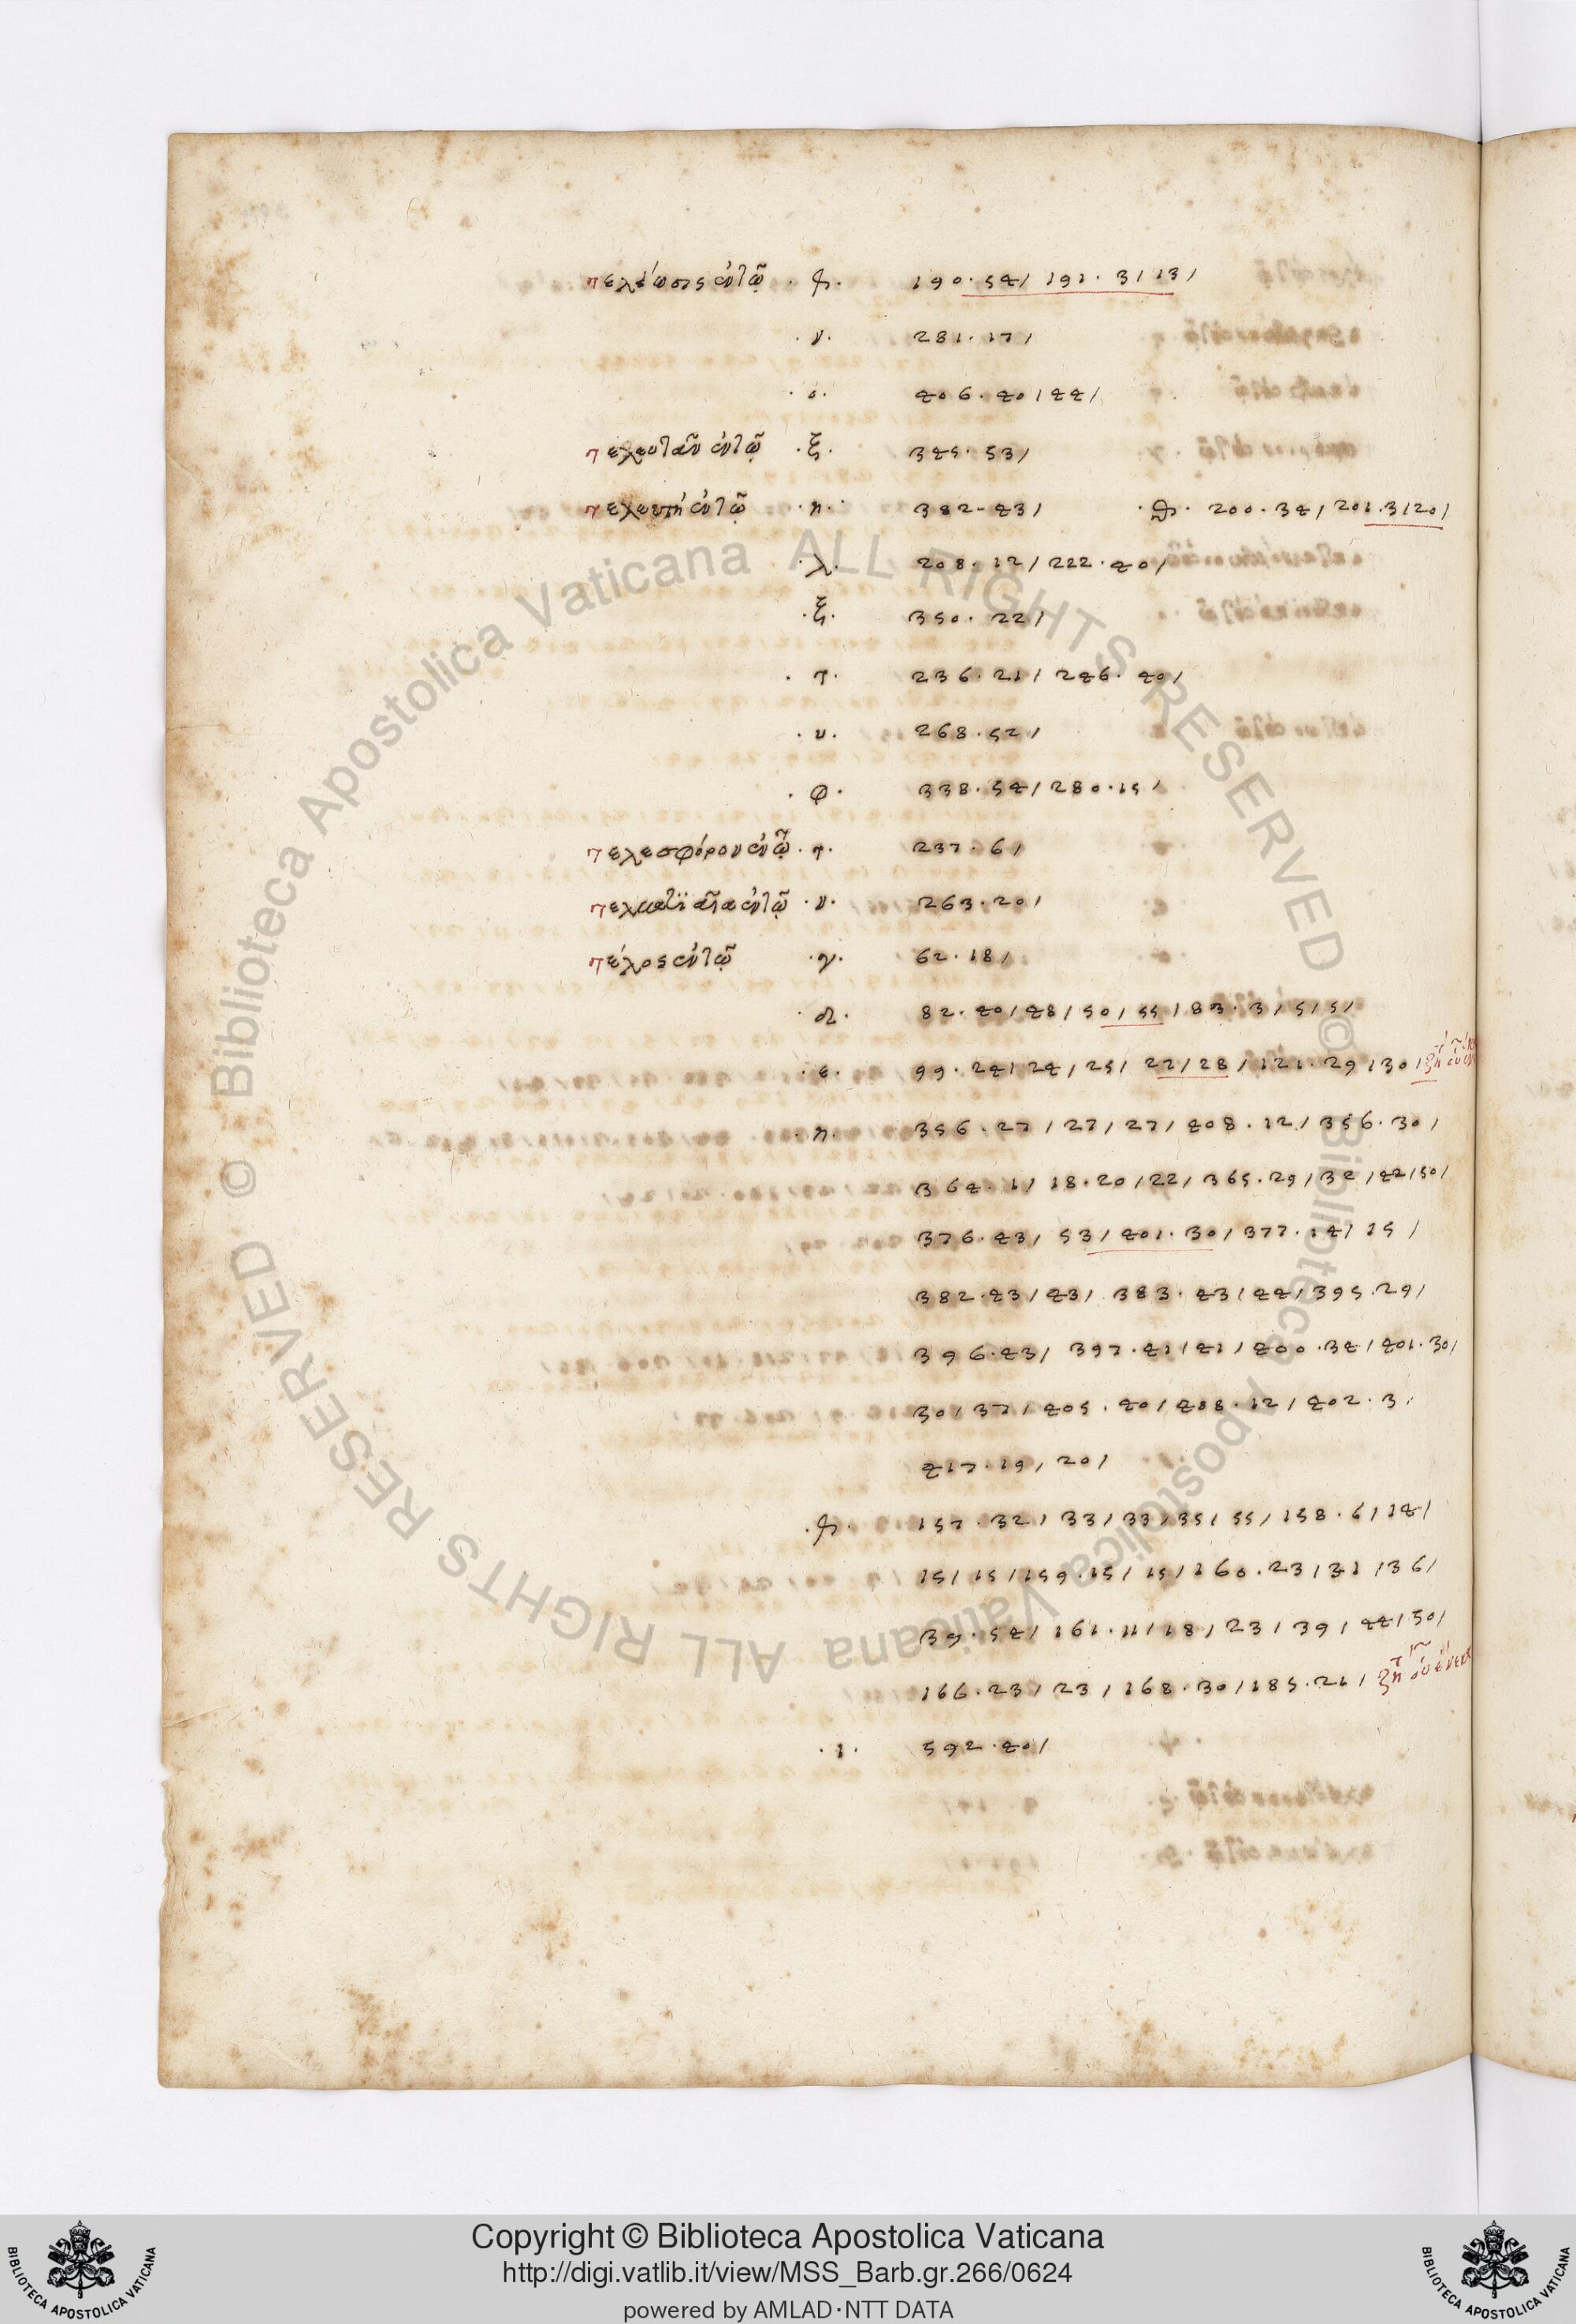 τελείωσις ἐν τῷ · θ · 190 · 54 / 191 · 3 / 13 /
· ν · 281 · 17 /
· ο · 406 · 40 / 44 /
τελευτᾶν ἐν τῷ · ξ · 345 · 53 /
τελευτὴ ἐν τῷ · η · 382 · 43 / · θ · 200 · 34 / 201 · 3 / 20 /
· λ · 208 · 12 / 222 · 40 /
· ξ · 350 · 22 /
· τ · 236 · 21 / 246 · 40 /
· υ · 268 · 52 /
· φ · 338 · 54 / 280 · 15 /
τελεσφόρον ἐν τῷ · τ · 237 · 6 /
ἐν τῷ · ν · 263 · 20 /
τέλος ἐν τῷ · γ · 62 · 18 /
· δ · 82 · 40 / 48 / 50 / 55 / 83 · 3 / 5 / 5 /
· ε · 99 · 24 / 24 / 25 / 27 / 28 / 121 · 29 / 30 /
· η · 356 · 27 / 27 / 27 / 408 · 12 / 356 · 30 /
364 · 1 / 18 · 20 / 22 / 365 · 29 / 32 / 42 / 50 /
376 · 43 / 53 / 401 · 30 / 377 · 14 / 15 /
382 · 43 / 43 / 383 · 43 / 44 / 395 · 29 /
396 · 43 / 397 · 41 / 41 / 400 · 34 / 401 · 30 /
30 / 37 / 405 · 40 / 408 · 12 / 402 · 3 /
417 · 19 / 20 /
· θ · 157 · 32 / 33 / 33 / 35 / 55 / 158 · 6 / 14 /
15 / 15 / 159 · 15 / 15 / 160 · 23 / 31 / 36 /
39 · 54 / 161 · 11 / 18 / 23 / 39 / 44 / 50 /
166 · 23 / 23 / 168 · 30 / 185 · 21 / οὗ ἕνεκα
· ι · 592 · 40 /
© Biblioteca Apostolica Vaticana ALL RIGHTS RESERVED © Biblioteca Apostolica Vaticana ALL RIGHTS RESERVED
Copyright © Biblioteca Apostolica Vaticana
http://digi.vatlib.it/view/MSS_Barb.gr.266/0624
powered by AMLAD·NTT DATA
BIBLIOTECA APOSTOLICA VATICANA
BIBLIOTECA APOSTOLICA VATICANA